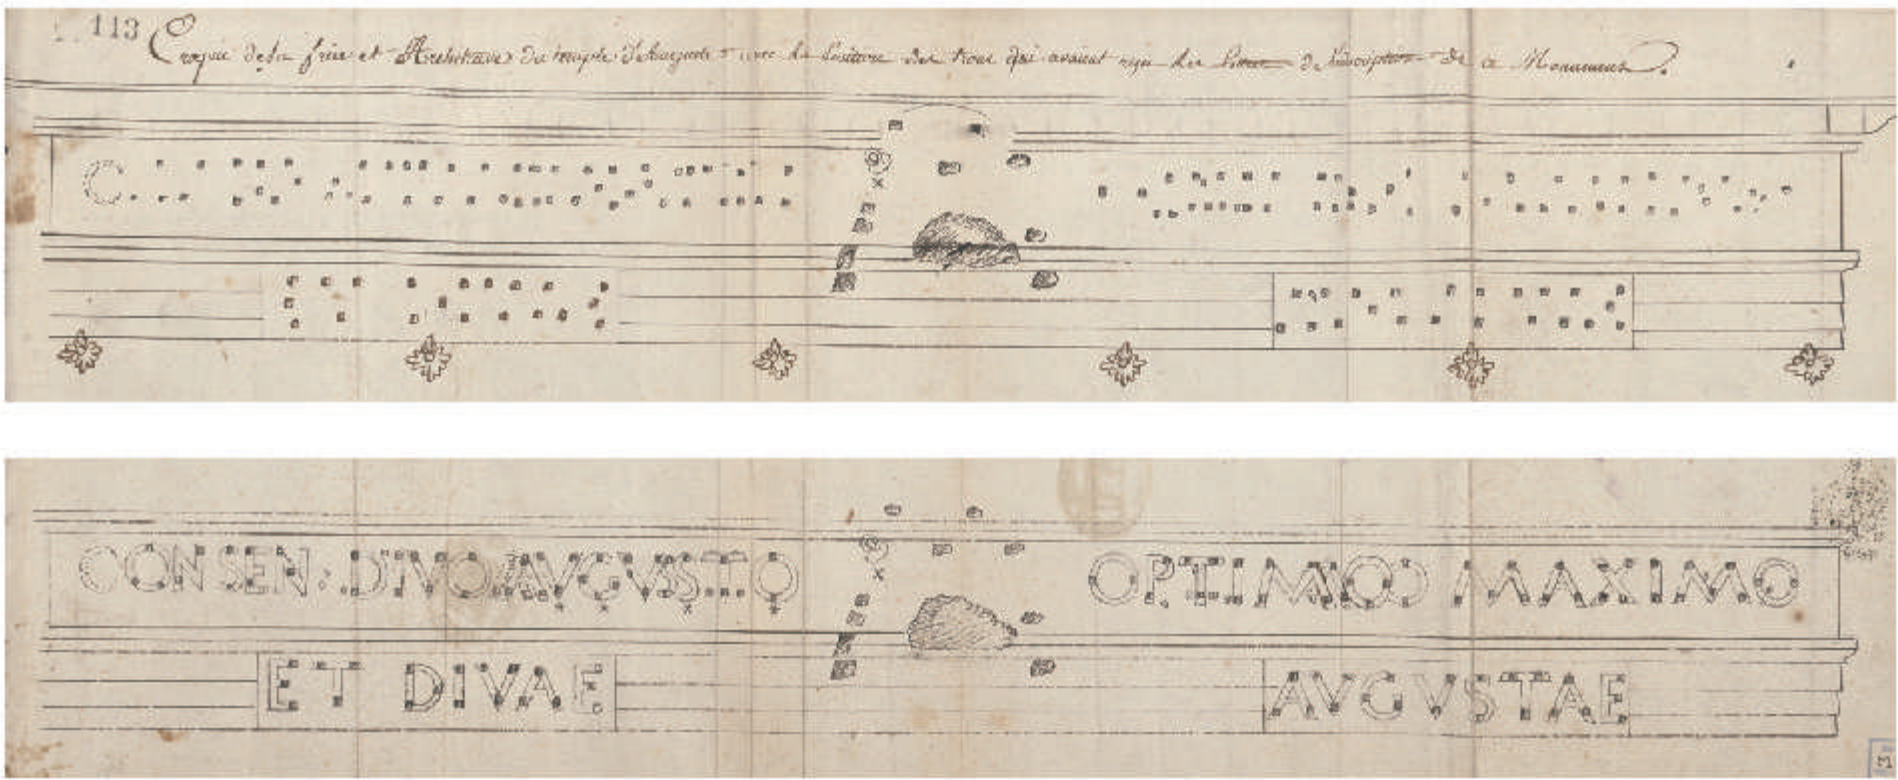 113
Croquis de la frise et Architrave du temple d'Auguste avec la Position des trous qui avaient reçu les Lettres de l'inscription de ce Monument.
CONSEN. DIVO AUGUSTO OPTIMO MAXIMO
ET DIVAE AUGUSTAE